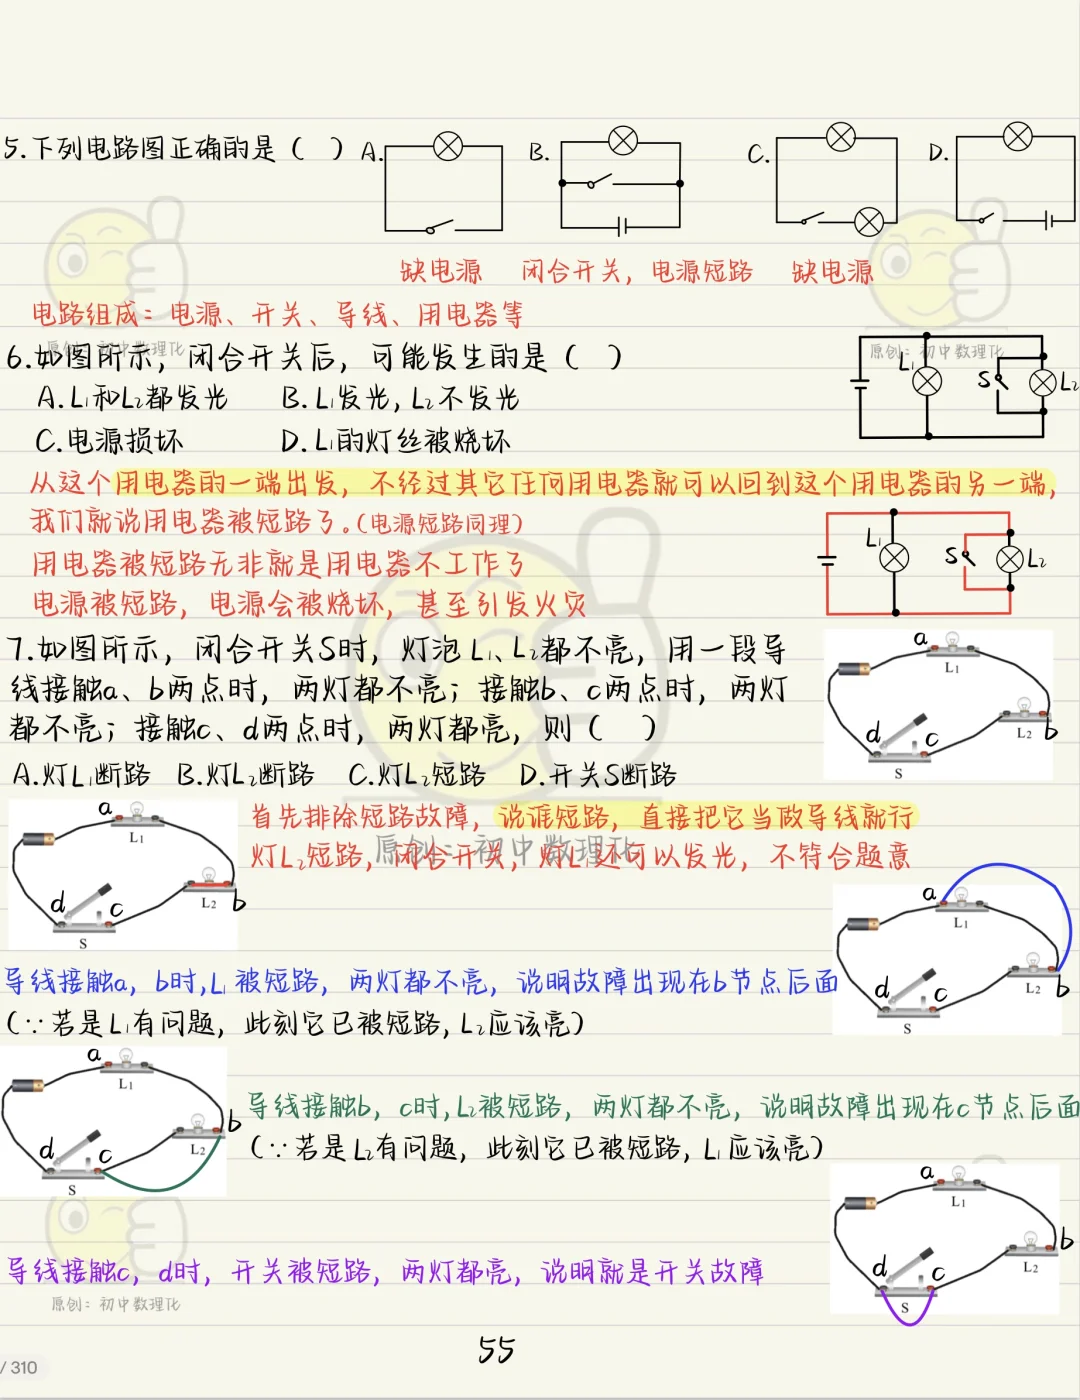 5.下列电路图正确的是（ ）A. B. C. D.
缺电源 闭合开关，电源短路 缺电源
电路组成：电源、开关、导线、用电器等
原创：初中数理化
6.如图所示，闭合开关后，可能发生的是（ ）
原创：初中数理化
L₁ S L₂
A.L₁和L₂都发光 B.L₁发光，L₂不发光
C.电源损坏 D.L₁的灯丝被烧坏
从这个用电器的一端出发，不经过其它任何用电器就可以回到这个用电器的另一端，
我们就说用电器被短路了。（电源短路同理）
L₁ S L₂
用电器被短路无非就是用电器不工作了
电源被短路，电源会被烧坏，甚至引发火灾
7.如图所示，闭合开关S时，灯泡L₁、L₂都不亮，用一段导
线接触a、b两点时，两灯都不亮；接触b、c两点时，两灯
都不亮；接触c、d两点时，两灯都亮，则（ ）
a L₁ d c L₂ b S
A.灯L₁断路 B.灯L₂断路 C.灯L₂短路 D.开关S断路
a L₁ d c L₂ b S
首先排除短路故障，说谁短路，直接把它当做导线就行
灯L₂短路，闭合开关，灯L₁还可以发光，不符合题意
原创：初中数理化
a L₁ d c L₂ b S
导线接触a，b时，L₁被短路，两灯都不亮，说明故障出现在b节点后面
（∵若是L₁有问题，此刻它已被短路，L₂应该亮）
a L₁ d c L₂ b S
导线接触b，c时，L₂被短路，两灯都不亮，说明故障出现在c节点后面
（∵若是L₂有问题，此刻它已被短路，L₁应该亮）
a L₁ d c L₂ b S
导线接触c，d时，开关被短路，两灯都亮，说明就是开关故障
原创：初中数理化
55
/ 310